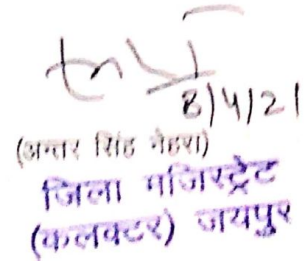 8/4/21
(अन्तर सिंह नेहरा)
जिला मजिस्ट्रेट
(कलक्टर) जयपुर